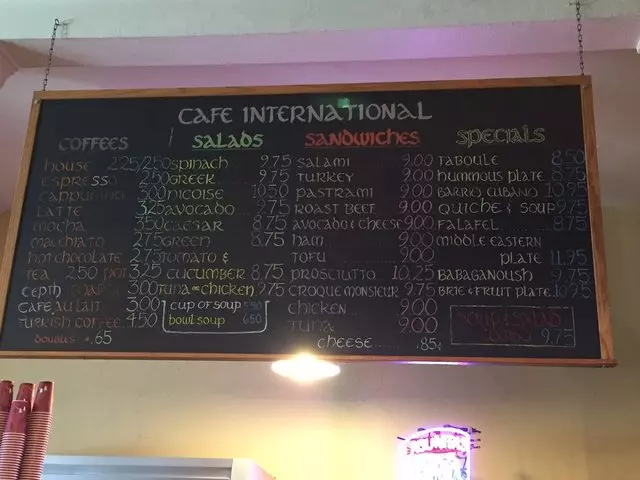 CAFE INTERNATIONAL
COFFEES
HOUSE 2.25/2.50
ESPRESSO 2.50
CAPPUCINO
LATTE 3.25
MOCHA 3.50
MACHIATO 2.75
HOT CHOCOLATE 2.75
TEA 2.50 POT 3.25
3.00
CAFE AU LAIT 3.00
TURKISH COFFEE 4.50
DOUBLES .65
SALADS
SPINACH 9.75
GREEK 9.75
NICOISE 10.50
AVOCADO 9.75
CAESAR 8.75
GREEN 8.75
TOMATO &
CUCUMBER 8.75
TUNA OR CHICKEN 9.75
CUP OF SOUP 5.50
BOWL SOUP 6.50
SANDWICHES
SALAMI 9.00
TURKEY 9.00
PASTRAMI 9.00
ROAST BEEF 9.00
AVOCADO & CHEESE 9.00
HAM 9.00
TOFU 9.00
PROSCIUTTO 10.25
CROQUE MONSIEUR 9.75
CHICKEN 9.00
TUNA 9.00
CHEESE .85¢
SPECIALS
TABOULE 8.50
HUMMOUS PLATE 8.75
BARRIO CUBANO 10.95
QUICHE & SOUP 9.75
FALAFEL 8.75
MIDDLE EASTERN
PLATE 11.95
BABAGANOUSH 9.75
BRIE & FRUIT PLATE 10.95
SOUP & SALAD
9.75